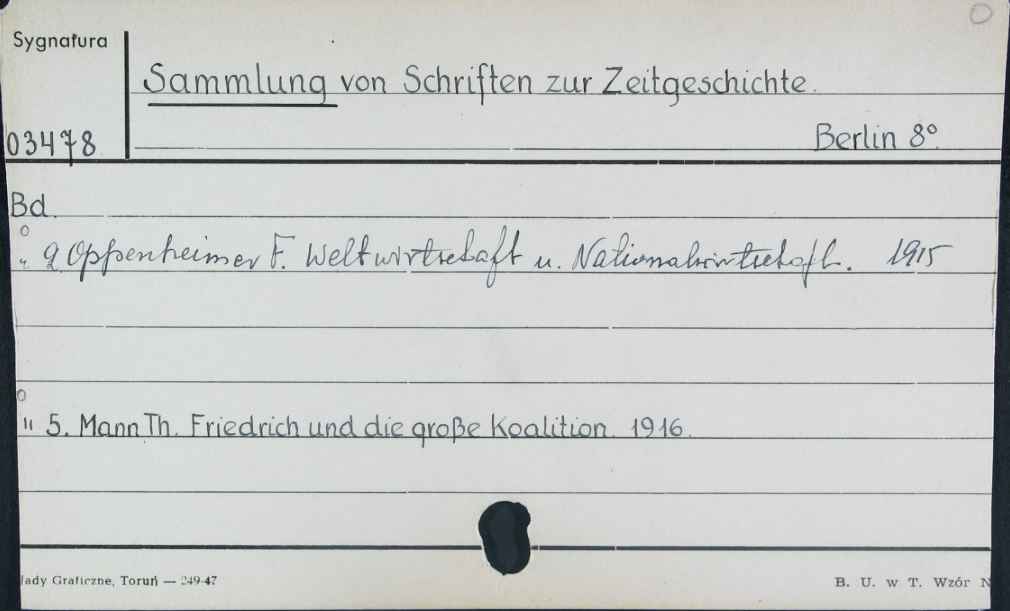 Sygnatura
Sammlung von Schriften zur Zeitgeschichte.
03478
Berlin 8°.
Bd.
" 2 Oppenheimer F. Weltwirtschaft u. Nationalwirtschaft. 1915
" 5. Mann Th. Friedrich und die große Koalition. 1916.
łady Graficzne, Toruń — 249-47
B. U. w T. Wzór N